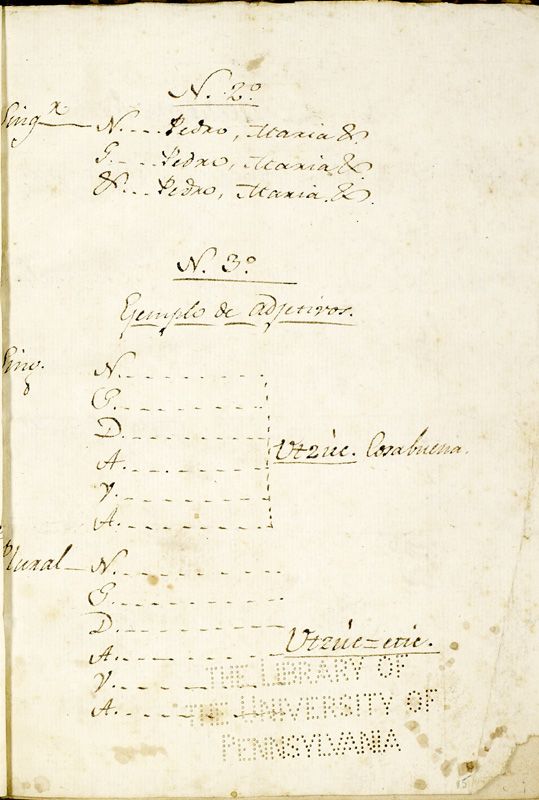 N. 2º
Singr N. - - - Pedro, Maria &.
G. - - Pedro, Maria &.
&. - - Pedro, Maria. &.
N. 3º
Ejemplo de Adjetivos.
Sing.
N. - - - - - - - - - -
G. - - - - - - - - - -
D. - - - - - - - - - -
Utzúc. Cosa buena.
A. - - - - - - - - - -
V. - - - - - - - - - -
A. - - - - - - - - - -
Plural N. - - - - - - - - - -
G. - - - - - - - - - -
D. - - - - - - - - - - Utzúc=etic.
A. - - - - - - - - - -
THE LIBRARY OF
V. - - - - - - - - - -
THE UNIVERSITY OF
A. - - - - - - - - - -
PENNSYLVANIA
15